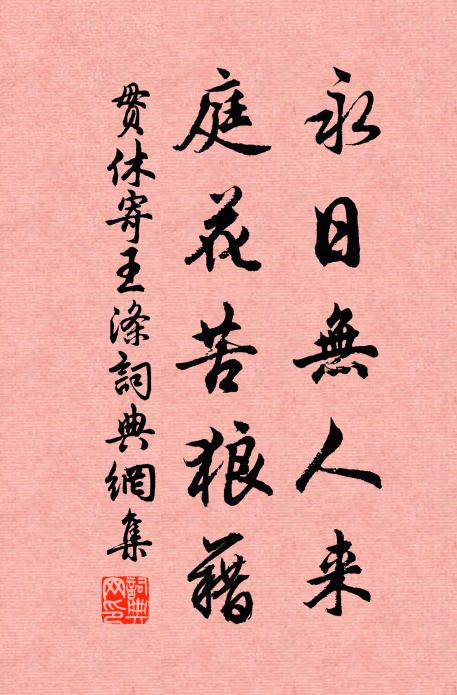 永日無人来
庭花苦狼藉
贯休寄王滌詞典網集
詞典
网印